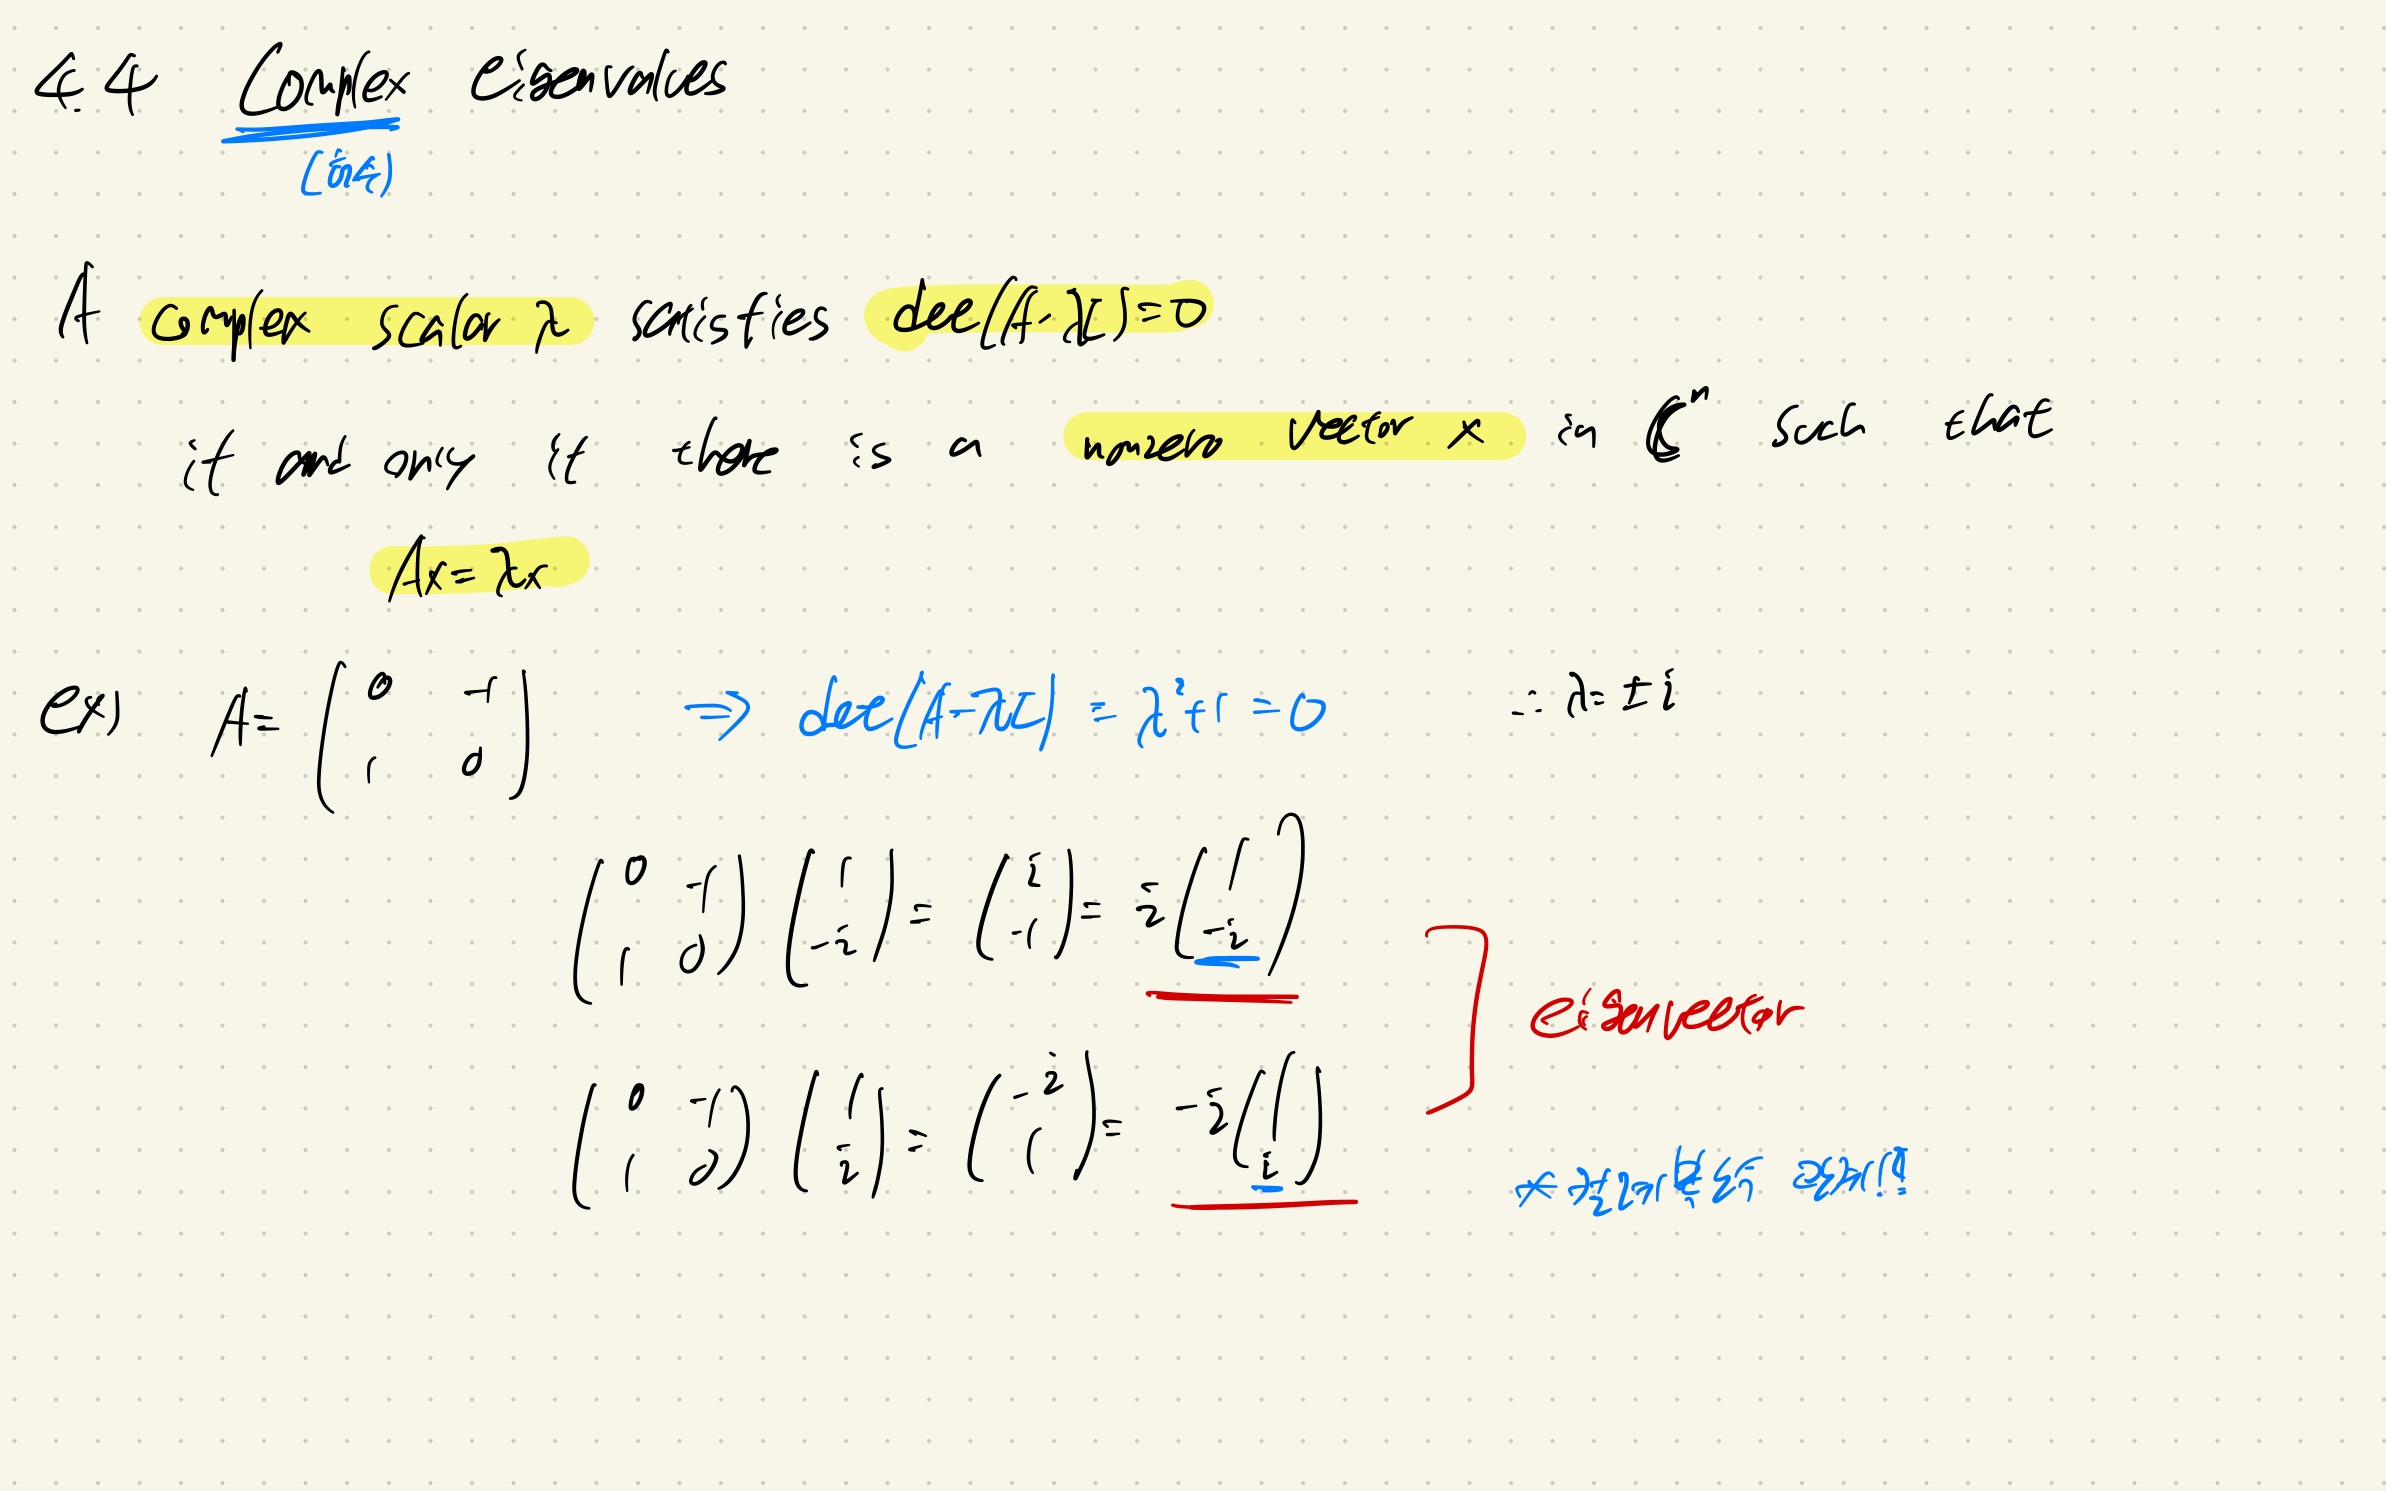 4.4 Complex eigenvalues
(허수)
A complex scalar λ satisfies det(A-λI)=0
if and only if there is a nonzero vector x in ℂⁿ such that
Ax=λx
ex) A= (0 -1; 1 0) ⇒ det(A-λI) = λ²+1 = 0 ∴ λ= ±i
(0 -1; 1 0) (1; -i) = (i; -1) = i(1; -i)
(0 -1; 1 0) (1; i) = (-i; 1) = -i(1; i)
eigenvector